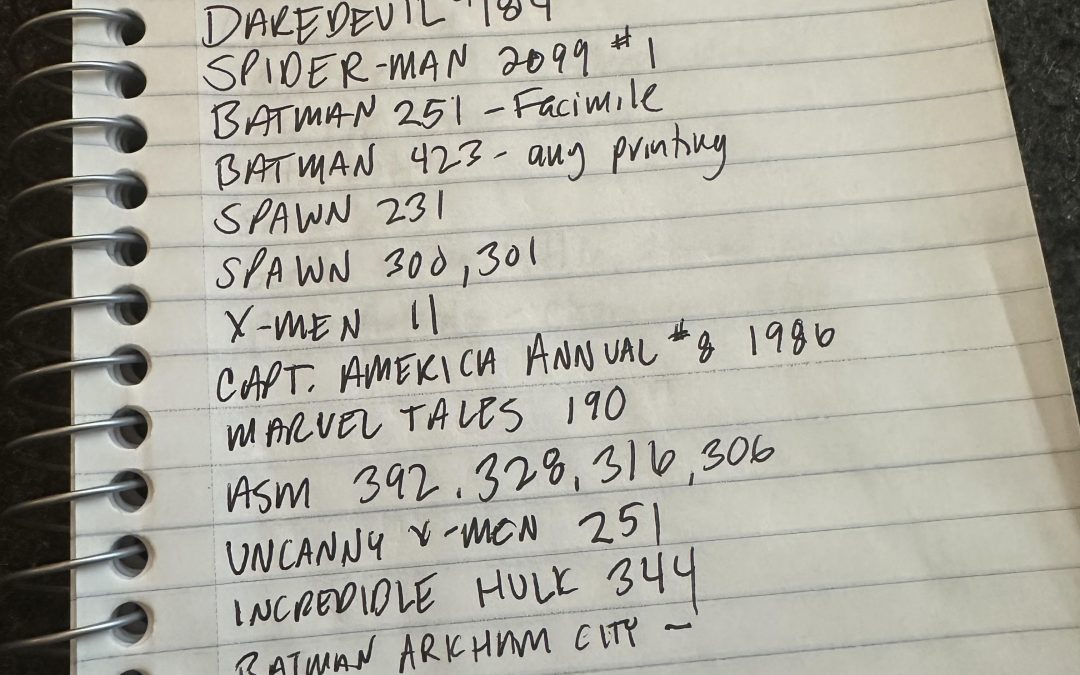 DAREDEVIL # 184
SPIDER-MAN 2099 #1
BATMAN 251 - Facimile
BATMAN 423 - any printing
SPAWN 231
SPAWN 300, 301
X-MEN 11
CAPT. AMERICA ANNUAL #8 1986
MARVEL TALES 190
ASM 392, 328, 316, 306
UNCANNY X-MEN 251
INCREDIDLE HULK 344
BATMAN ARKHAM CITY -